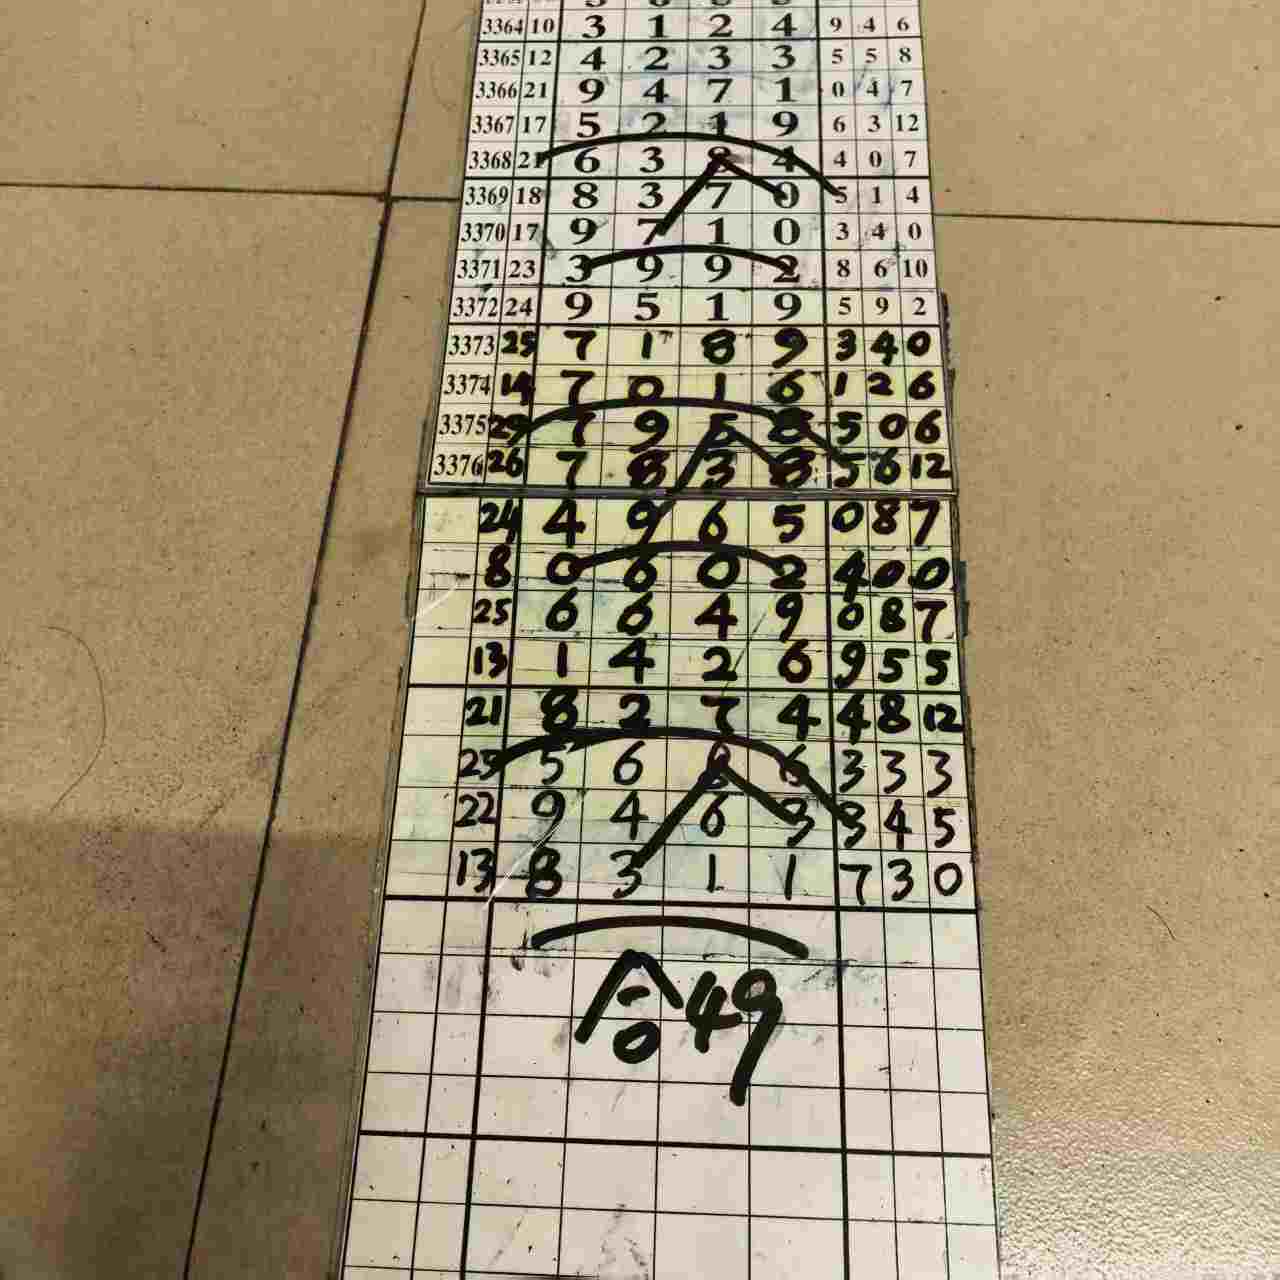 3364 10 3 1 2 4 9 4 6
3365 12 4 2 3 3 5 5 8
3366 21 9 4 7 1 0 4 7
3367 17 5 2 1 9 6 3 12
3368 21 6 3 8 4 4 0 7
3369 18 8 3 7 0 5 1 4
3370 17 9 7 1 0 3 4 0
3371 23 3 9 9 2 8 6 10
3372 24 9 5 1 9 5 9 2
3373 25 7 1 8 9 3 4 0
3374 14 7 0 1 6 1 2 6
3375 29 7 9 5 8 5 0 6
3376 26 7 8 3 8 5 6 12
24 4 9 6 5 0 8 7
8 0 6 0 2 4 0 0
25 6 6 4 9 0 8 7
13 1 4 2 6 9 5 5
21 8 2 7 4 4 8 12
25 5 6 8 6 3 3 3
22 9 4 6 3 3 4 5
13 8 3 1 1 7 3 0
合49